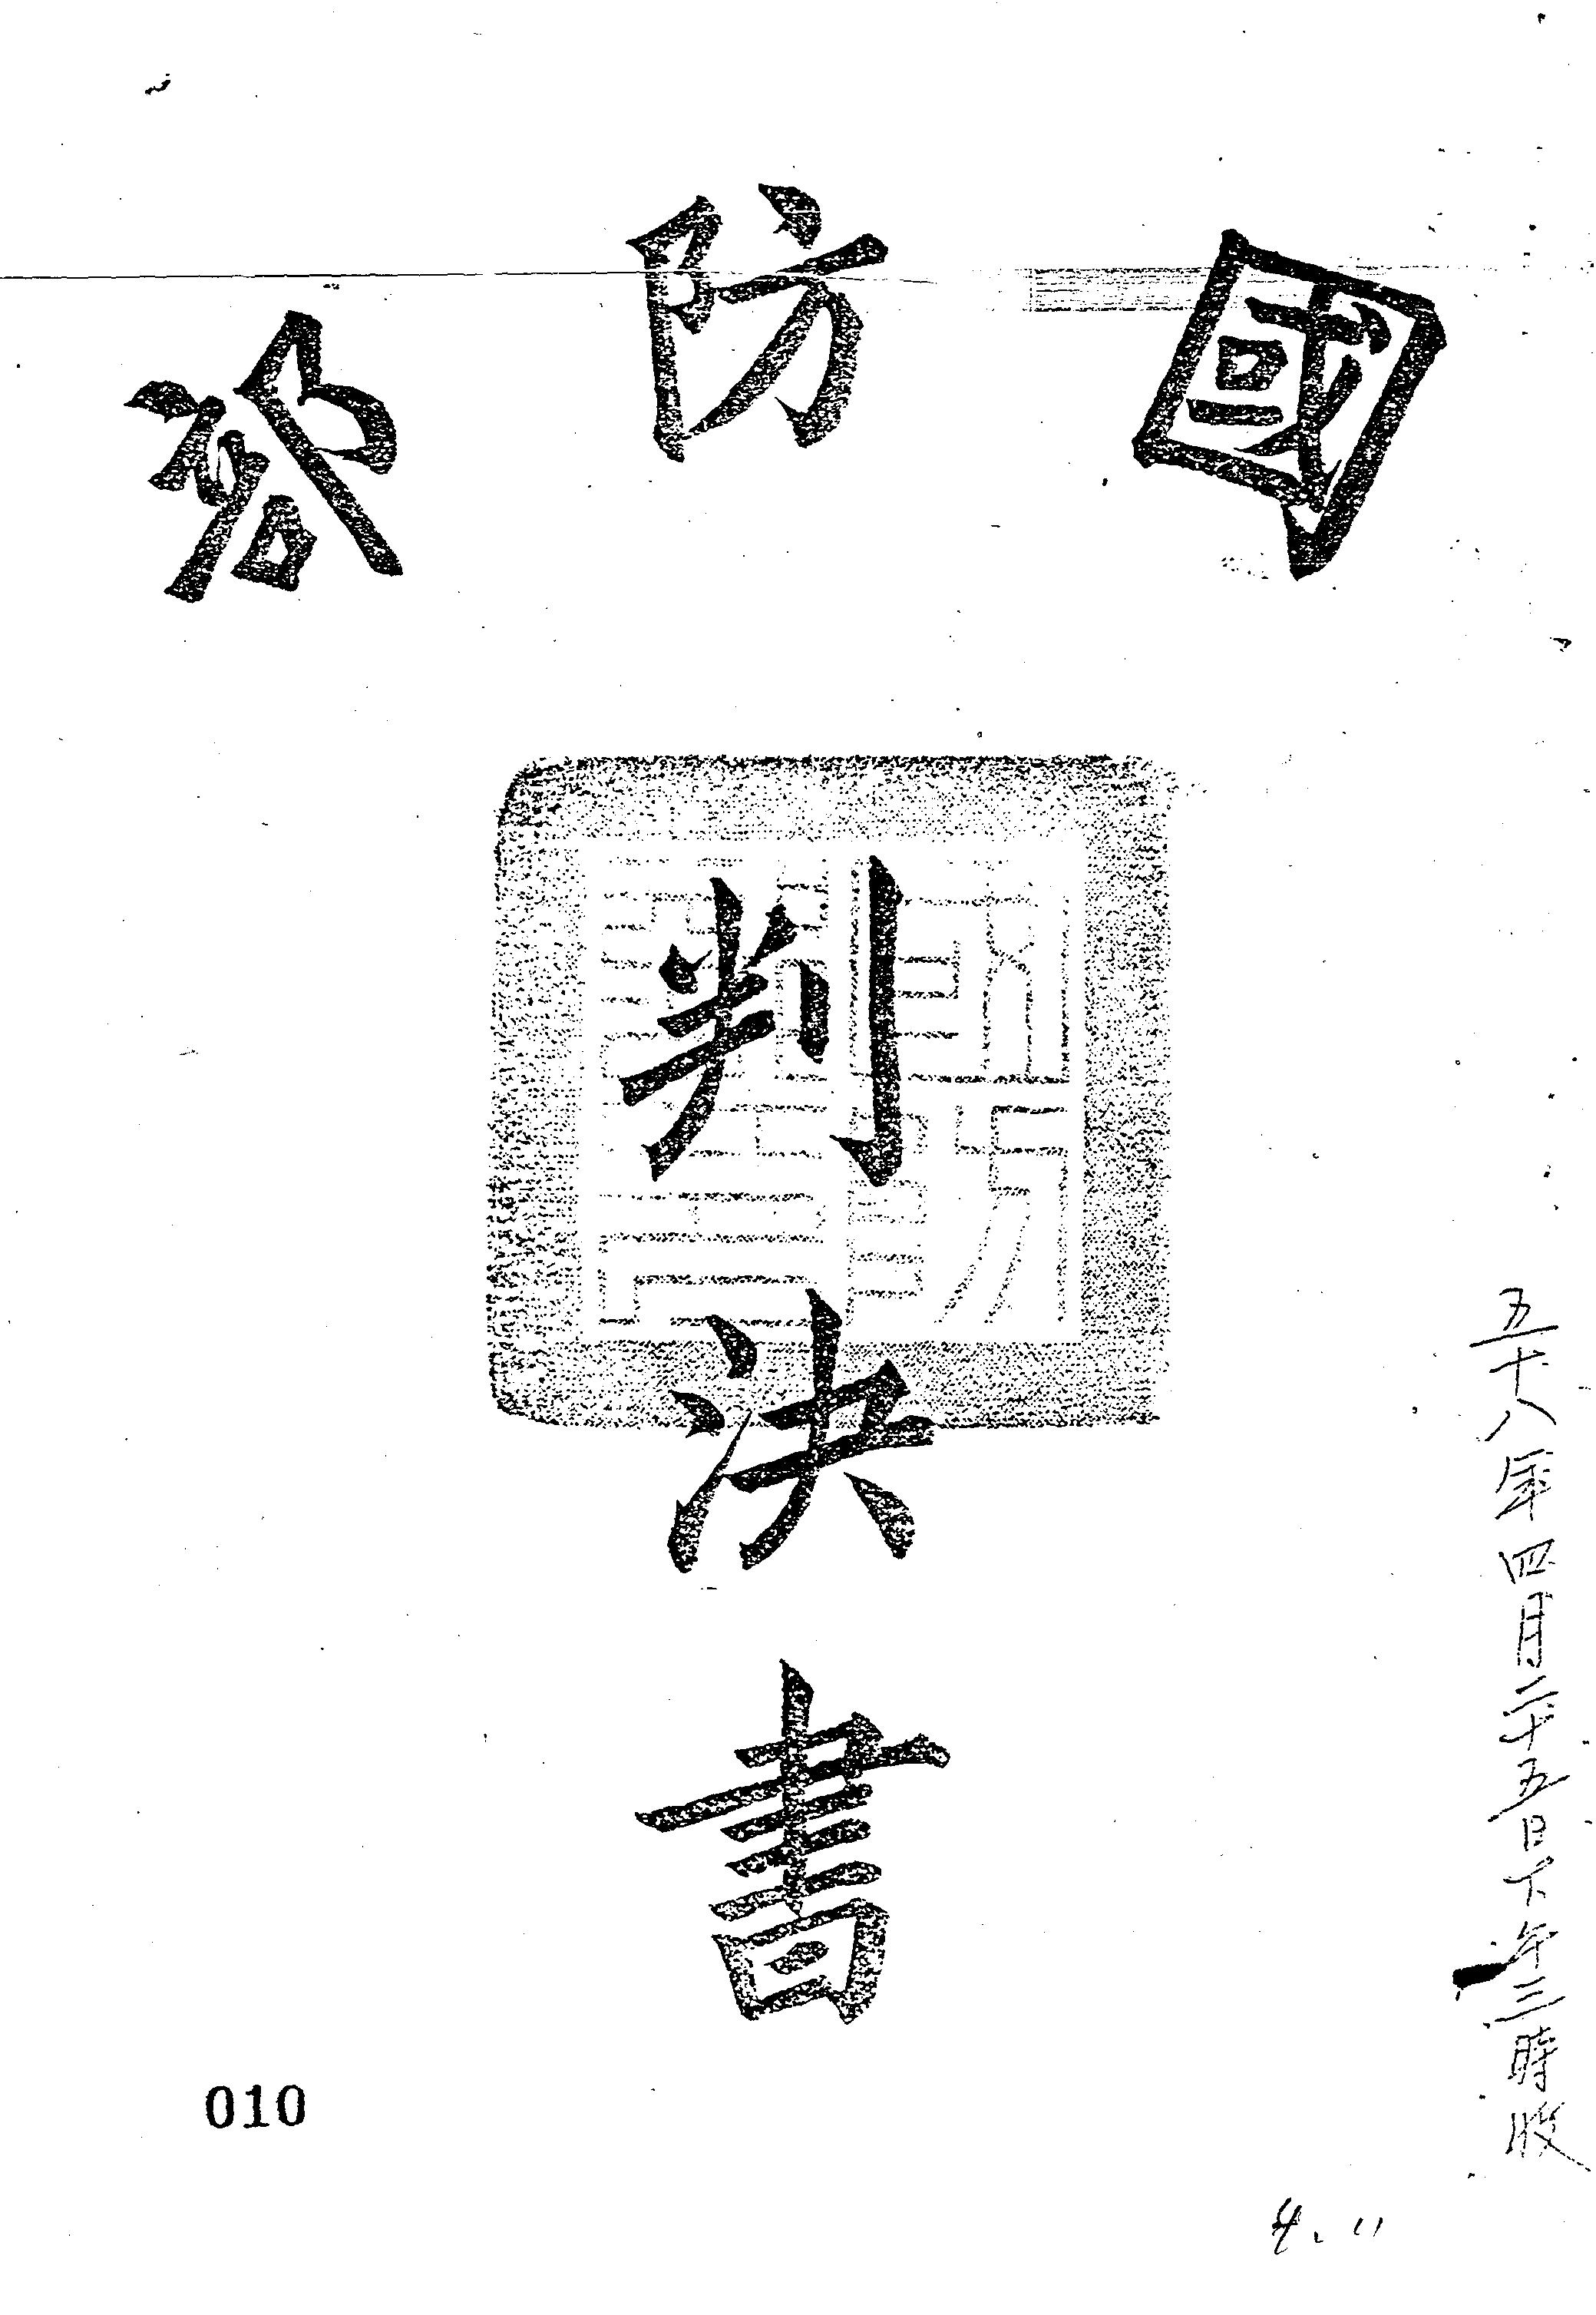 國防部
判決書
五十八年四月二十五日下午三時收
010
4.11